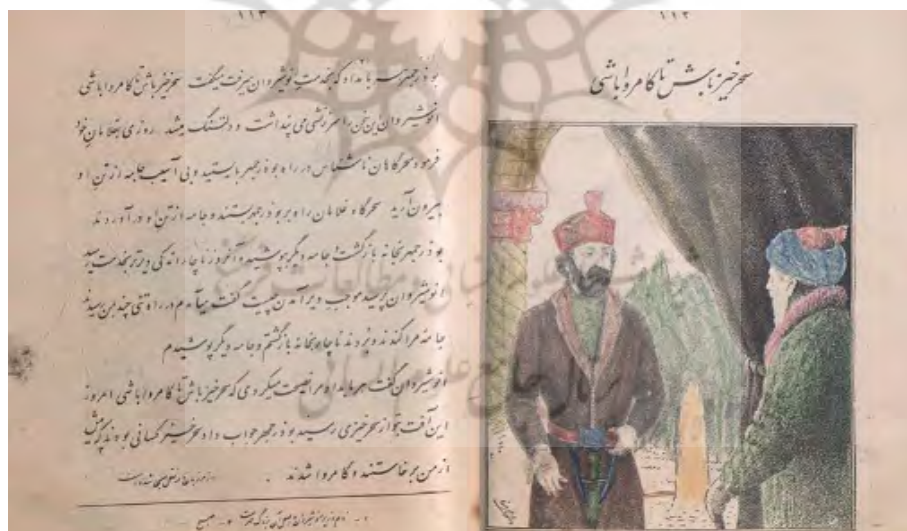 ۱۱۲
سحرخیز باش تا کامروا باشی
۱۱۳
بوذرجمهر هر بامداد که بخدمت نوشیروان میرفت میگفت سحرخیز باش تا کامروا باشی
انوشیروان این سخن را سرزنشی می پنداشت و دلتنگ میشد. روزی بغلامان خود
فرمود سحرگاهان ناشناس در راه بوذرجمهر بایستید و بی آسیب جامه از تن او
بیرون آرید سحرگاه غلامان راه بر بوذرجمهر بستند و جامه از تن او در آوردند
بوذرجمهر بخانه بازگشت و جامه دیگر پوشید و آنروز ناچار اندکی دیرتر بخدمت رسید
انوشیروان پرسید موجب دیر آمدن چیست گفت میآمدم در راه تنی چند بمن رسیدند
جامه مرا کندند و بردند ناچار بخانه بازگشتم و جامه دیگر پوشیدم
انوشیروان گفت هر بامداد مرا نصیحت میکردی که سحرخیز باش تا کامروا باشی امروز
این آفت بتو از سحرخیزی رسید بوذرجمهر جواب داد سحرخیز کسانی بودند که پیش
از من برخاستند و کامروا شدند.